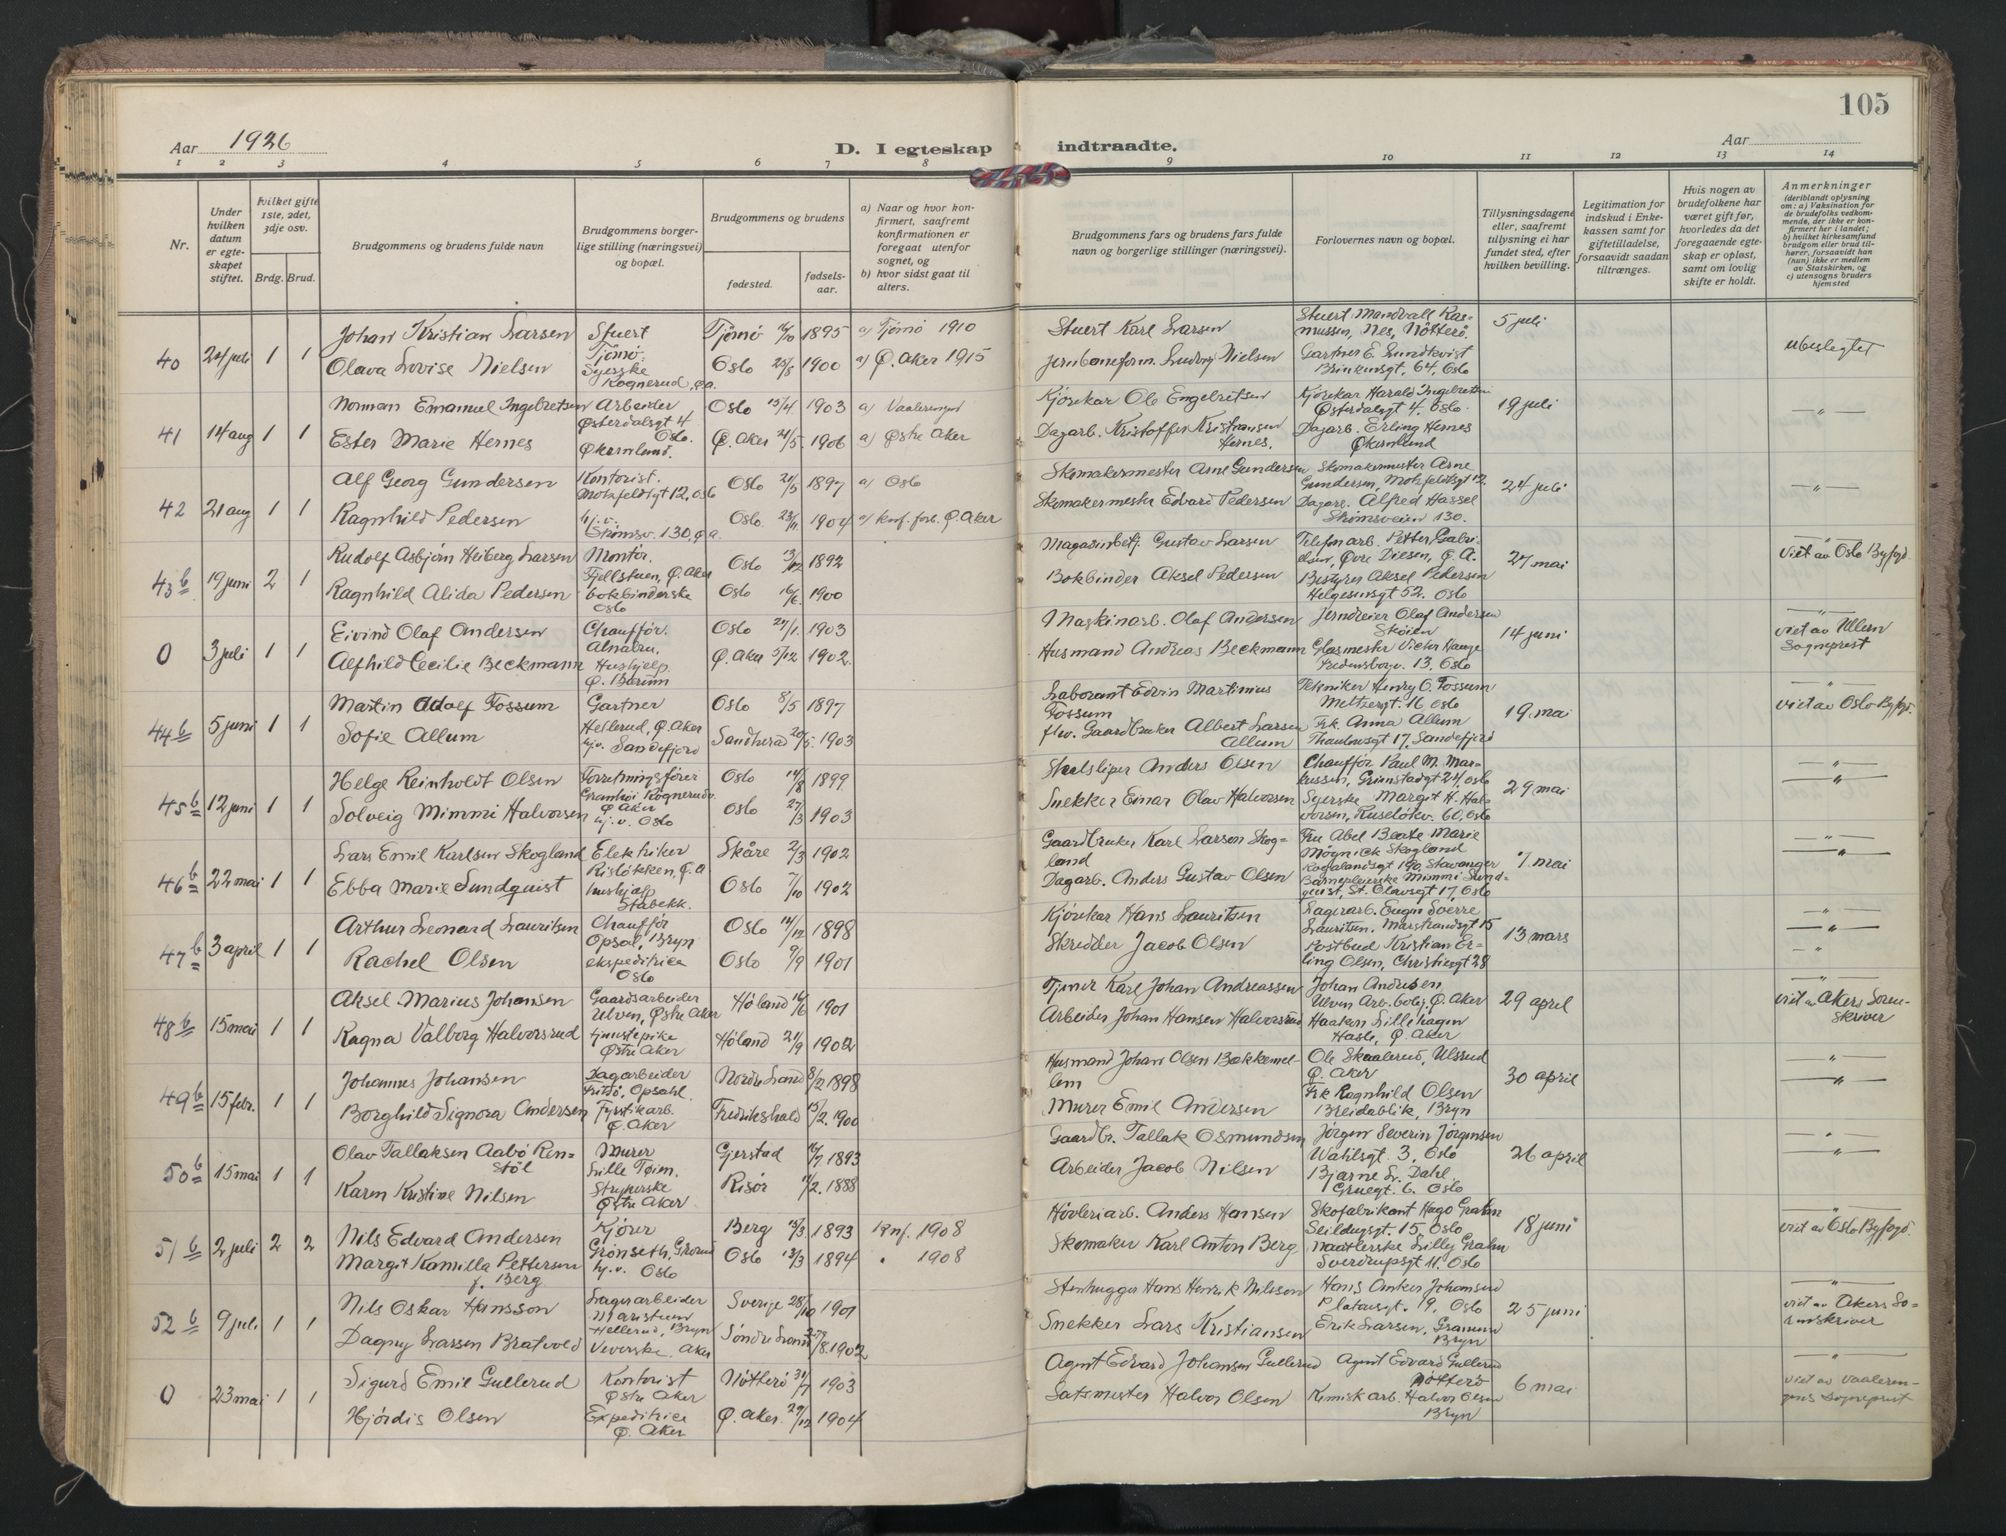 105
Aar 1926
D. I egteskap indtraadte.
Aar
1 2 3 4 5 6 7 8 9 10 11 12 13 14
Nr.
Under hvilken datum er egteskapet stiftet.
hvilket gifte 1ste, 2det, 3dje osv.
Brdg. Brud.
Brudgommens og brudens fulde navn
Brudgommens borgerlige stilling (næringsvei) og bopæl.
Brudgommens og brudens
fødested.
fødselsaar.
a) Naar og hvor konfirmert, saafremt konfirmationen er foregaat utenfor sognet, og
b) hvor sidst gaat til alters.
Brudgommens fars og brudens fars fulde navn og borgerlige stillinger (næringsvei).
Forlovernes navn og bopæl.
Tillysningsdagene eller, saafremt tillysning ei har fundet sted, efter hvilken bevilling.
Legitimation for indskud i Enkekassen samt for giftetilladelse, forsaavidt saadan tiltrænges.
Hvis nogen av brudefolkene har været gift før, hvorledes da det foregaaende egteskap er opløst, samt om lovlig skifte er holdt.
Anmerkninger
(deriblandt oplysning om: a) Vaksination for de brudefolks vedkommende, der ikke er konfirmert her i landet; b) hvilket kirkesamfund brudgom eller brud tilhører, forsaavidt han (hun) ikke er medlem av Statskirken, og c) utensogns bruders hjemsted
40 24 juli 1 1
Johan Kristian Larsen Stuert Tjømø. Tjømø 1895 a) Tjømø 1910
Olava Lovise Nielsen Syerske Rognerud, Ø.a. Oslo 25/8 1900 a) Ø. Aker 1915
Stuert Karl Larsen Stuert Mandvall Rasmussen, Nes, Nøtterø. 5 juli
Jernbaneform. Ludvig Nielsen Gartner E. Lundkvist Brinkensgt. 64, Oslo
ubeslegtet
41 14 aug 1 1
Norman Emanuel Ingebretsen Arbeider Østerdalsgt 4 Oslo. Oslo 13/4 1903 a) Vaalerengen
Ester Marie Hernes Økernlund. Ø. Aker 21/5 1906 a) Østre Aker
Kjørekar Ole Engebretsen Kjørekar Harald Ingebretsen Østerdalsgt 4. Oslo. 19 juli
Dagarb. Kristoffer Kristiansen Hernes. Dagarb. Erling Hernes Økernlund
— " —
42 21 aug 1 1
Alf Georg Gundersen Kontorist. Motzfeldtsgt 12, Oslo Oslo 21/5 1897 a) Oslo
Ragnhild Pedersen hj.v. Strømsv. 130, Ø.a. Oslo. 23/11 1904 a) konf. forb. Ø. Aker
Skomakermester Arne Gundersen Skomakermester Arne Gundersen, Motzfeldtsgt 12. 24 juli
Skomakermester Edvard Pedersen Dagarb. Alfred Hassel Strømsveien 130.
— " —
43 b 19 juni 2 1
Rudolf Asbjørn Heiberg Larsen Montør. Fjellstuen, Ø. Aker Oslo 13/12 1892
Ragnhild Alida Pedersen bokbinderske Oslo Oslo 16/6 1900
Magasinbetj. Gustav Larsen Telefonarb. Petter Gabrielsen, Øvre Diesen, Ø. A. 27 mai
Bokbinder Aksel Pedersen Bestyrer Aksel Pedersen Helgesensgt 52. Oslo
— " — viet av Oslo Byfogd
0 3 juli 1 1
Eivind Olaf Andersen Chauffør. Alnabru. Oslo 27/1. 1903
Alfhild Cecilie Beckmann Hushjelp. Ø. Bærum Ø. Aker 5/12 1902.
Maskinarb. Olaf Andersen Jerndreier Olaf Andersen Skøien 14 juni
Husmand Andreas Beckmann Glasmester Victor Hauge Fredensborgv. 13, Oslo
— " — viet av Ullern Sogneprest
44 b 5 juni 1 1
Martin Adolf Fossum Gartner Hellerud, Ø. Aker Oslo 8/5 1897
Sofie Allum hj.v. Sandefjord Sandherad 20/5. 1903
Laborant Edvin Martinius Fossum Tekniker Henry O. Fossum Meltzersgt. 16 Oslo 19. mai
flv. Gaardbruker Albert Larsen Allum Frk. Anna Allum Thaulowsgt 17, Sandefjord
— " — viet av Oslo Byfogd.
45 b 12 juni 1 1
Helge Reinholdt Olsen Forretningsfører Granhøi Rognerudv. Ø. Aker Oslo 14/8 1899
Solveig Mimmi Halvorsen hj.v. Oslo Oslo 27/3 1903
Stålsliper Anders Olsen Chauffør Paul M. Markussen, Grimstadgt 24, Oslo 29 mai
Snekker Einar Olav Halvorsen Syerske Margit H. Halvorsen, Ruseløkv. 60, Oslo
— " —
— " —
46 b 22 mai 1 1
Lars Emil Karlsen Skogland Elektriker Risløkken, Ø. A Skåre 2/3 1902
Ebba Marie Sundquist hushjelp Stabekk. Oslo 7/10 1902
Gaardbruker Karl Larson Skogland Fru Abel Beate Marie Møgnick Skogland Rogalandsgt 19a, Stavanger 7. mai
Dagarb. Anders Gustav Olsen Barnepleierske Mimmi Sundquist, St. Olavsgt 17, Oslo
— " —
— " —
47 b 3 april 1 1
Arthur Leonard Lauritsen Chauffør Opsal, Bryn Oslo 14/12 1898
Rachel Olsen ekspeditrice Oslo Oslo 9/9 1901
Kjørekar Hans Lauritsen Lagerarb. Eugen Sverre Lauritsen. Marstrandsgt 15 13 mars
Skredder Jacob Olsen Postbud Kristian Erling Olsen, Christiesgt 28
— " —
— " —
— " —
48 b 15 mai 1 1
Aksel Marius Johansen Gaardsarbeider Ulven, Østre Aker Høland 16/6 1901
Ragna Valborg Halvorsrud tjenestepike Østre Aker Høland 21/9 1902
Tjener Karl Johan Andreassen Johan Andresen Ulven Arb. bolig, Ø. Aker 29 april
Arbeider Johan Hansen Halvorsrud Haakon Lillehagen Hasle, Ø. Aker
— " — viet av Akers Sorenskriver
49 b 15 febr. 1 1
Johannes Johansen Dagarbeider Fritsø, Opsahl. Nordre Land 8/2 1898
Borghild Signora Andersen Fyrstikarb. Ø. Aker Fredrikshald 15/2. 1900
Husmand Johans Olsen Bækkemellem Ole Skaalerud, Ulsrud Ø. Aker 30 april
Murer Emil Andersen Frk Ragnhild Olsen Breidablik, Bryn
— " —
— " —
50 b 15 mai 1 1
Olav Tallaksen Aabø Renstøl Murer Lille Tøim. Gjerstad 1893
Karen Kristine Nilsen Strykerske Østre Aker Risør 11/2. 1888
Gaardbr. Tallak Osmundsen Jørgen Severin Jørgensen Wahlsgt. 3, Oslo 26 april
Arbeider Jacob Nilsen Bjarne L. Dahl. Gruegt. 6. Oslo
— " —
— " —
51 b 2 juli 2 2
Nils Edvard Andersen Kjører Grønseth, Grorud Berg 13/3 1893 Knf. 1908
Margit Kamilla Pettersen f. Berg hj.v. Oslo Oslo 13/3 1894 " 1908
Høvleriarb. Anders Hansen Skofabrikant Hago Grahn Seildugsgt. 15, Oslo. 18 juni
Skomaker Karl Anton Berg Naatlerske Lilly Grahn Sverdrupsgt 11. Oslo
— " — viet av Oslo Byfogd.
52 b 9 juli 1 1
Nils Oskar Hansson Lagerarbeider Maristuen Hellerud, Bryn Sverige 28/10 1901
Dagny Larsen Bratvold Veverske. Aker Søndre Land /8. 1902
Stenhugger Hans Henrik Nilsson Hans Anker Johansen Platousgt. 19, Oslo 25 juni
Snekker Lars Kristiansen Erik Larsen, Granum Bryn
— " — viet av Akers Sorenskriver
0 23 mai 1 1
Sigurd Emil Gullerud Kontorist Østre Aker Nøtterø 31/7 1903
Hjørdis Olsen Expeditrice Ø. Aker Ø. Aker. 29/12 1904
Agent Edvard Johansen Gullerud Agent Edvard Gullerud Nøtterø 6 mai
Satsmester Halvor Olsen Kemisk arb. Halvor Olsen Bryn
— " — viet av Vaalerengens Sogneprest